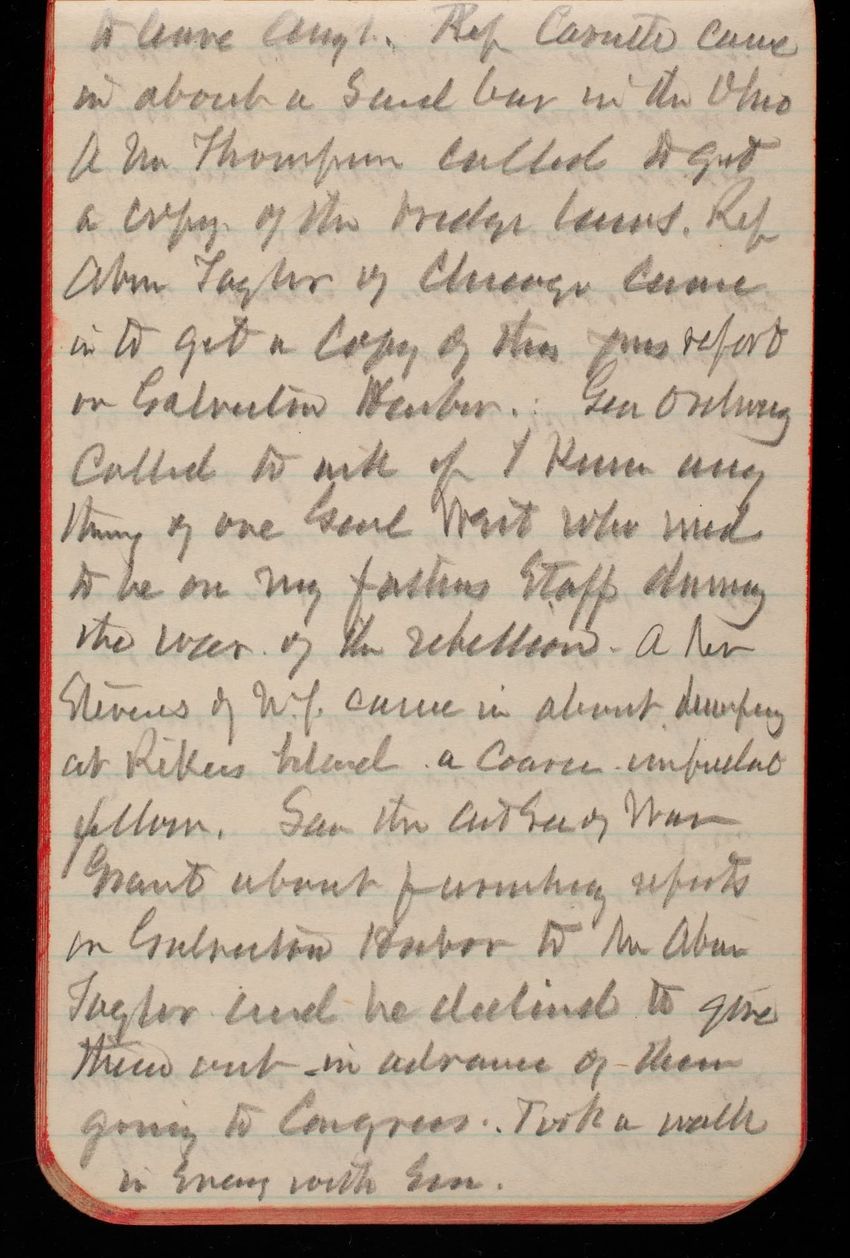 to leave Augt. Rep Caruth came
in about a Sand bar in the Ohio
A Mr Thompson called to get
a copy of the bridge laws. Rep
Abner Taylor of Chicago came
in to get a Copy of this years report
on Galveston Harbor. Gen Ordway
Called to ask if I knew any
thing of one Genl West who used
to be on my fathers Staff during
the war of the rebellion. A Mr
Stevens of N.J. came in about dumping
at Rikers Island a coarse impudent
fellow. Saw the Act Sec of War
Grant about furnishing reports
on Galveston Harbor to Mr Abner
Taylor and he declined to give
them out in advance of them
going to Congress. Took a walk
in Eveng with Gen.